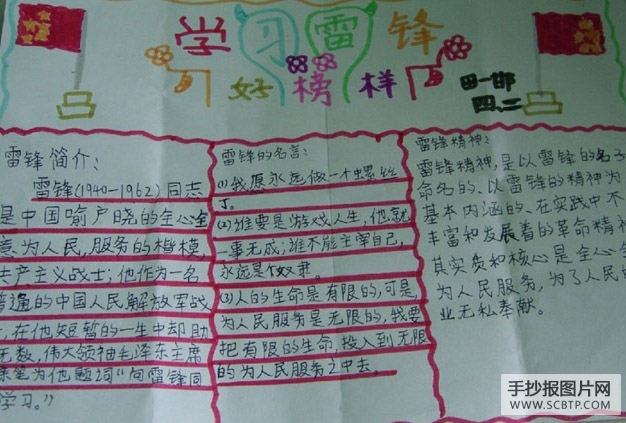 学习雷锋
好榜样
田一邯
四.二
雷锋简介:
雷锋(1940-1962)同志
是中国喻户晓的全心全
意为人民,服务的楷模,
共产主义战士;他作为一名
普通的中国人民解放军战
,在他短暂的一生中却助
无数,伟大领袖毛泽东主席
亲笔为他题词“向雷锋同
学习。”
雷锋的名言:
(1)我愿永远做一个螺丝
丁。
(2)谁要是游戏人生,他就
一事无成;谁不能主宰自己,
永远是个奴隶。
(3)人的生命是有限的,可是,
为人民服务是无限的,我要
把有限的生命,投入到无限
的为人民服务之中去。
雷锋精神:
雷锋精神,是以雷锋的名子
命名的、以雷锋的精神为
基本内涵的、在实践中不
丰富和发展着的革命精神
其实质和核心是全心全
为人民服务,为了人民的
业无私奉献。
手抄报图片网
WWW.SCBTP.COM